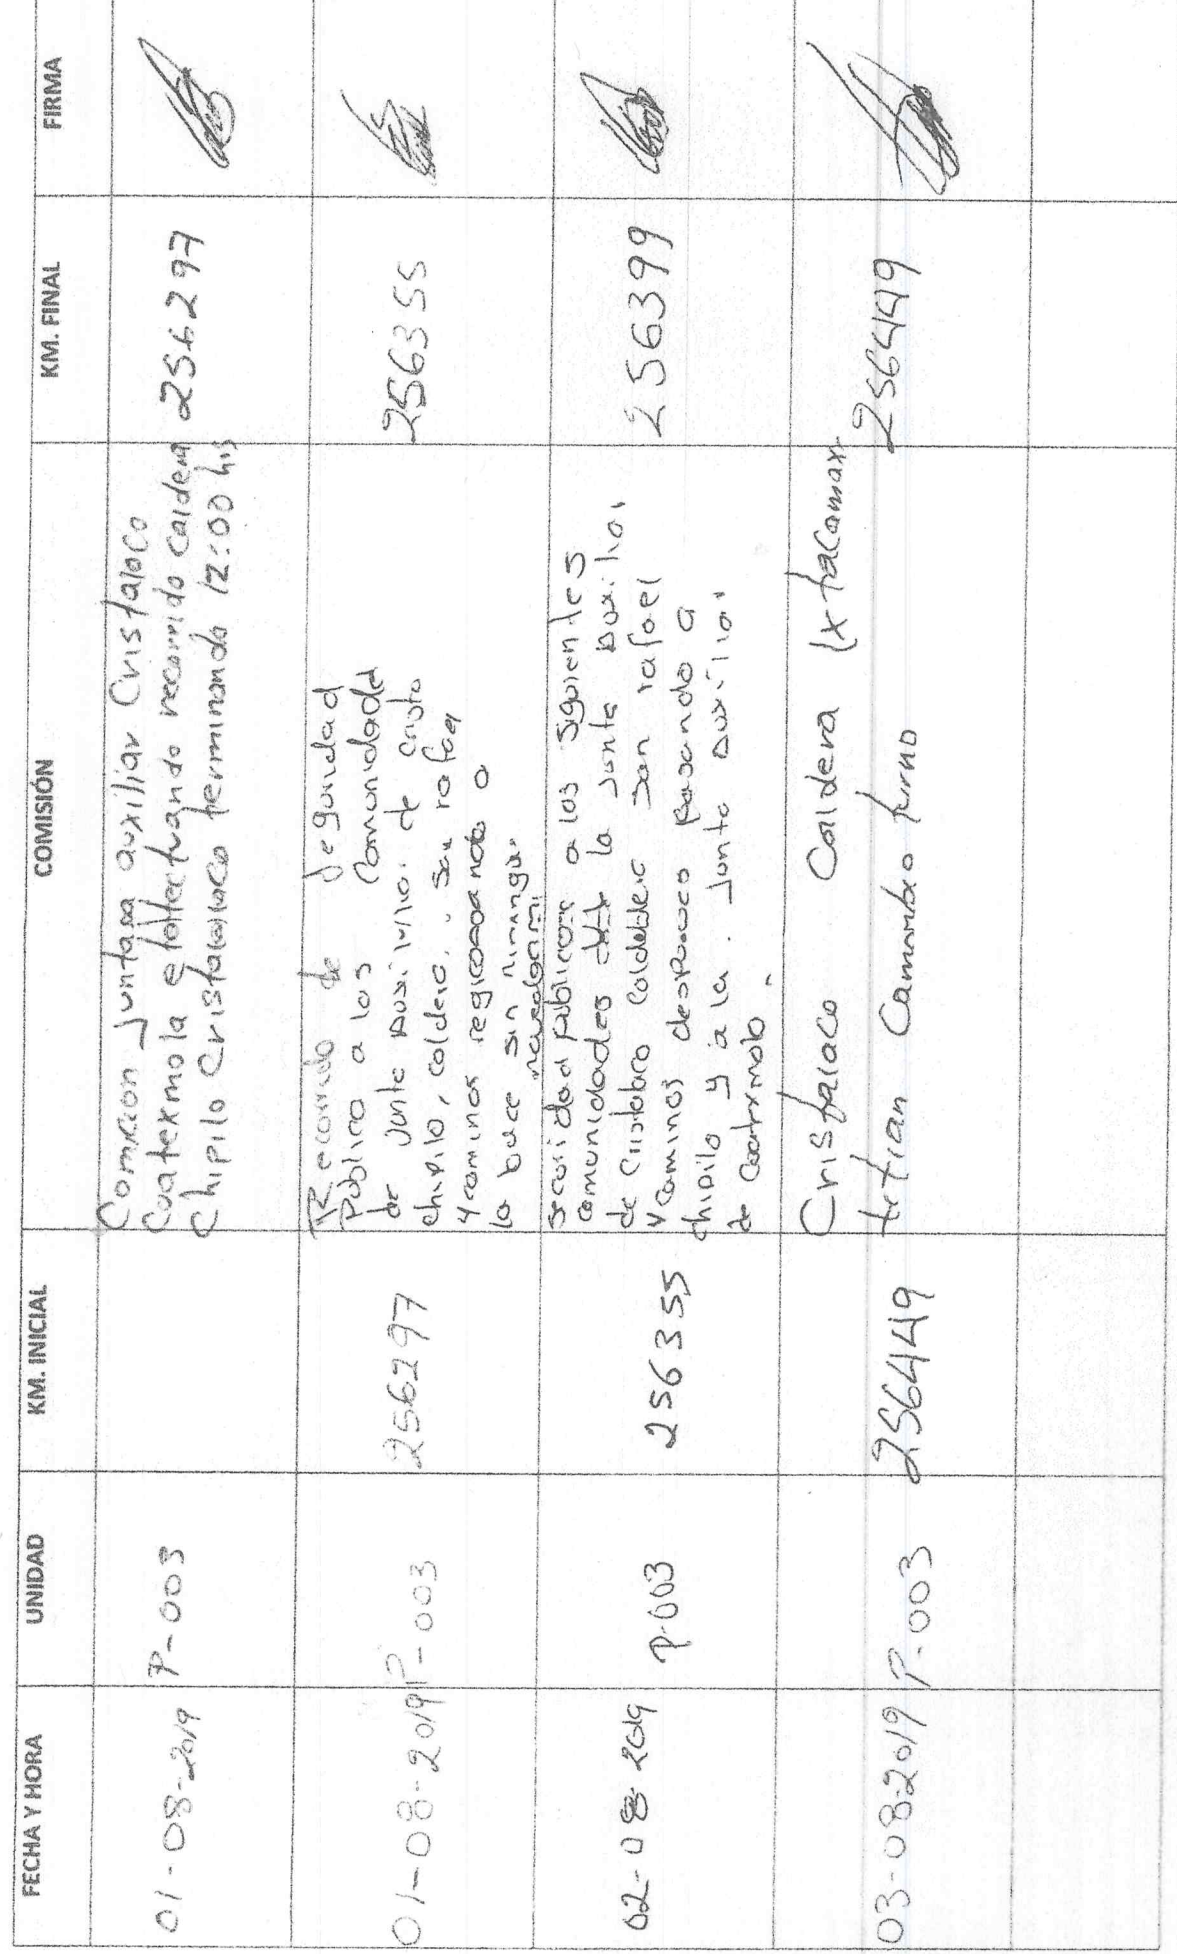 FECHA Y HORA UNIDAD KM. INICIAL COMISIÓN KM. FINAL FIRMA
01-08-2019 P-003
Comicion juntasa auxiliar Cristaloco
Cuatexmola efectuando recorrido Caldera
Chipilo Cristaloco terminando 12:00 hrs
256297
01-08-2019 P-003 256297
Recorrido de Seguridad
Publica a las Comunidaded
de Junta Auxiliar. de Cristo
chipilo, caldera, San rafael
y caminos regresando a
la base sin ningun
256355
02-08-2019 P-003 256355
Securidad publicas a los siguientes
comunidades la Junta Auxiliar
de Cristolaco Caldera San rafael
y Caminos despues pasando a
chipilo y a la. Junta auxiliar
de Coatexmola.
256399
03-08-2019 P-003 256449
Cristalaco Caldera Ixtacamax
tutian Camnbio turno
256449